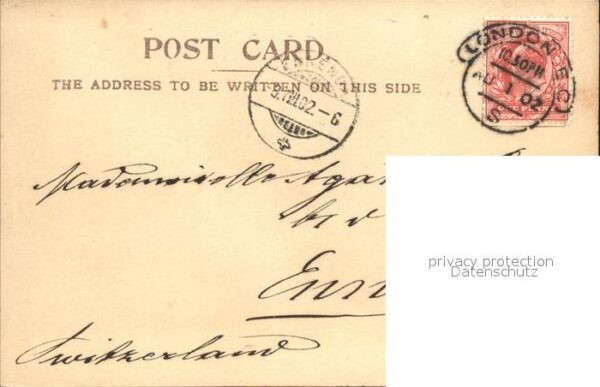 POST CARD.
THE ADDRESS TO BE WRITTEN ON THIS SIDE
LONDON E.C.
10.30PM
AU 1 02
S
02.-6
Mademoiselle Aga
Enn
Switzerland
privacy protection
Datenschutz